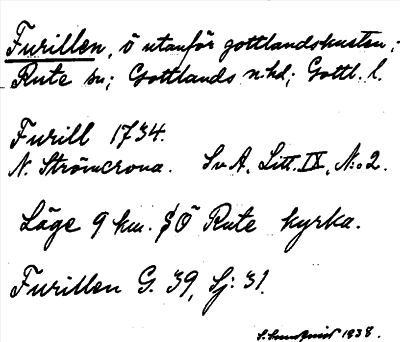 Furillen, ö utanför gottlandskusten;
Rute sn; Gottlands n. hd; Gottl. l.
Furill 1734.
N. Strömcrona. Sv A, Litt. IX, N:o 2.
Läge 9 km. SÖ Rute kyrka.
Furillen G. 39, Sj: 31.
1938.